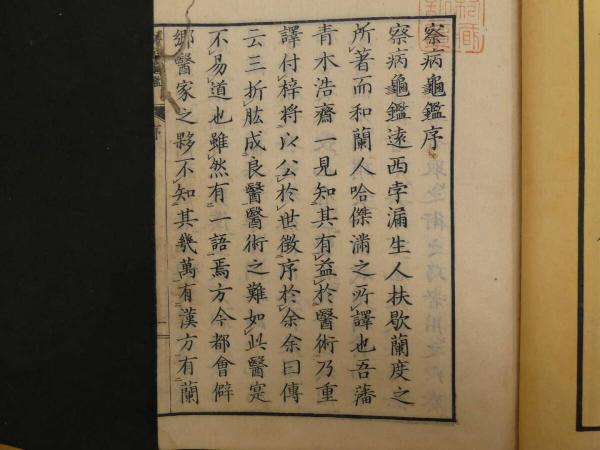 察病龜鑑序
察病龜鑑遠西孛漏生人扶歇蘭度之
所著而和蘭人哈傑滿之所譯也吾藩
青木浩齋一見知其有益於醫術乃重
譯付梓將以公於世徵序於余余曰傳
云三折肱成良醫醫術之難如此醫寔
不易道也雖然有一語焉方今都會僻
鄉醫家之夥不知其幾萬有漢方有蘭
序